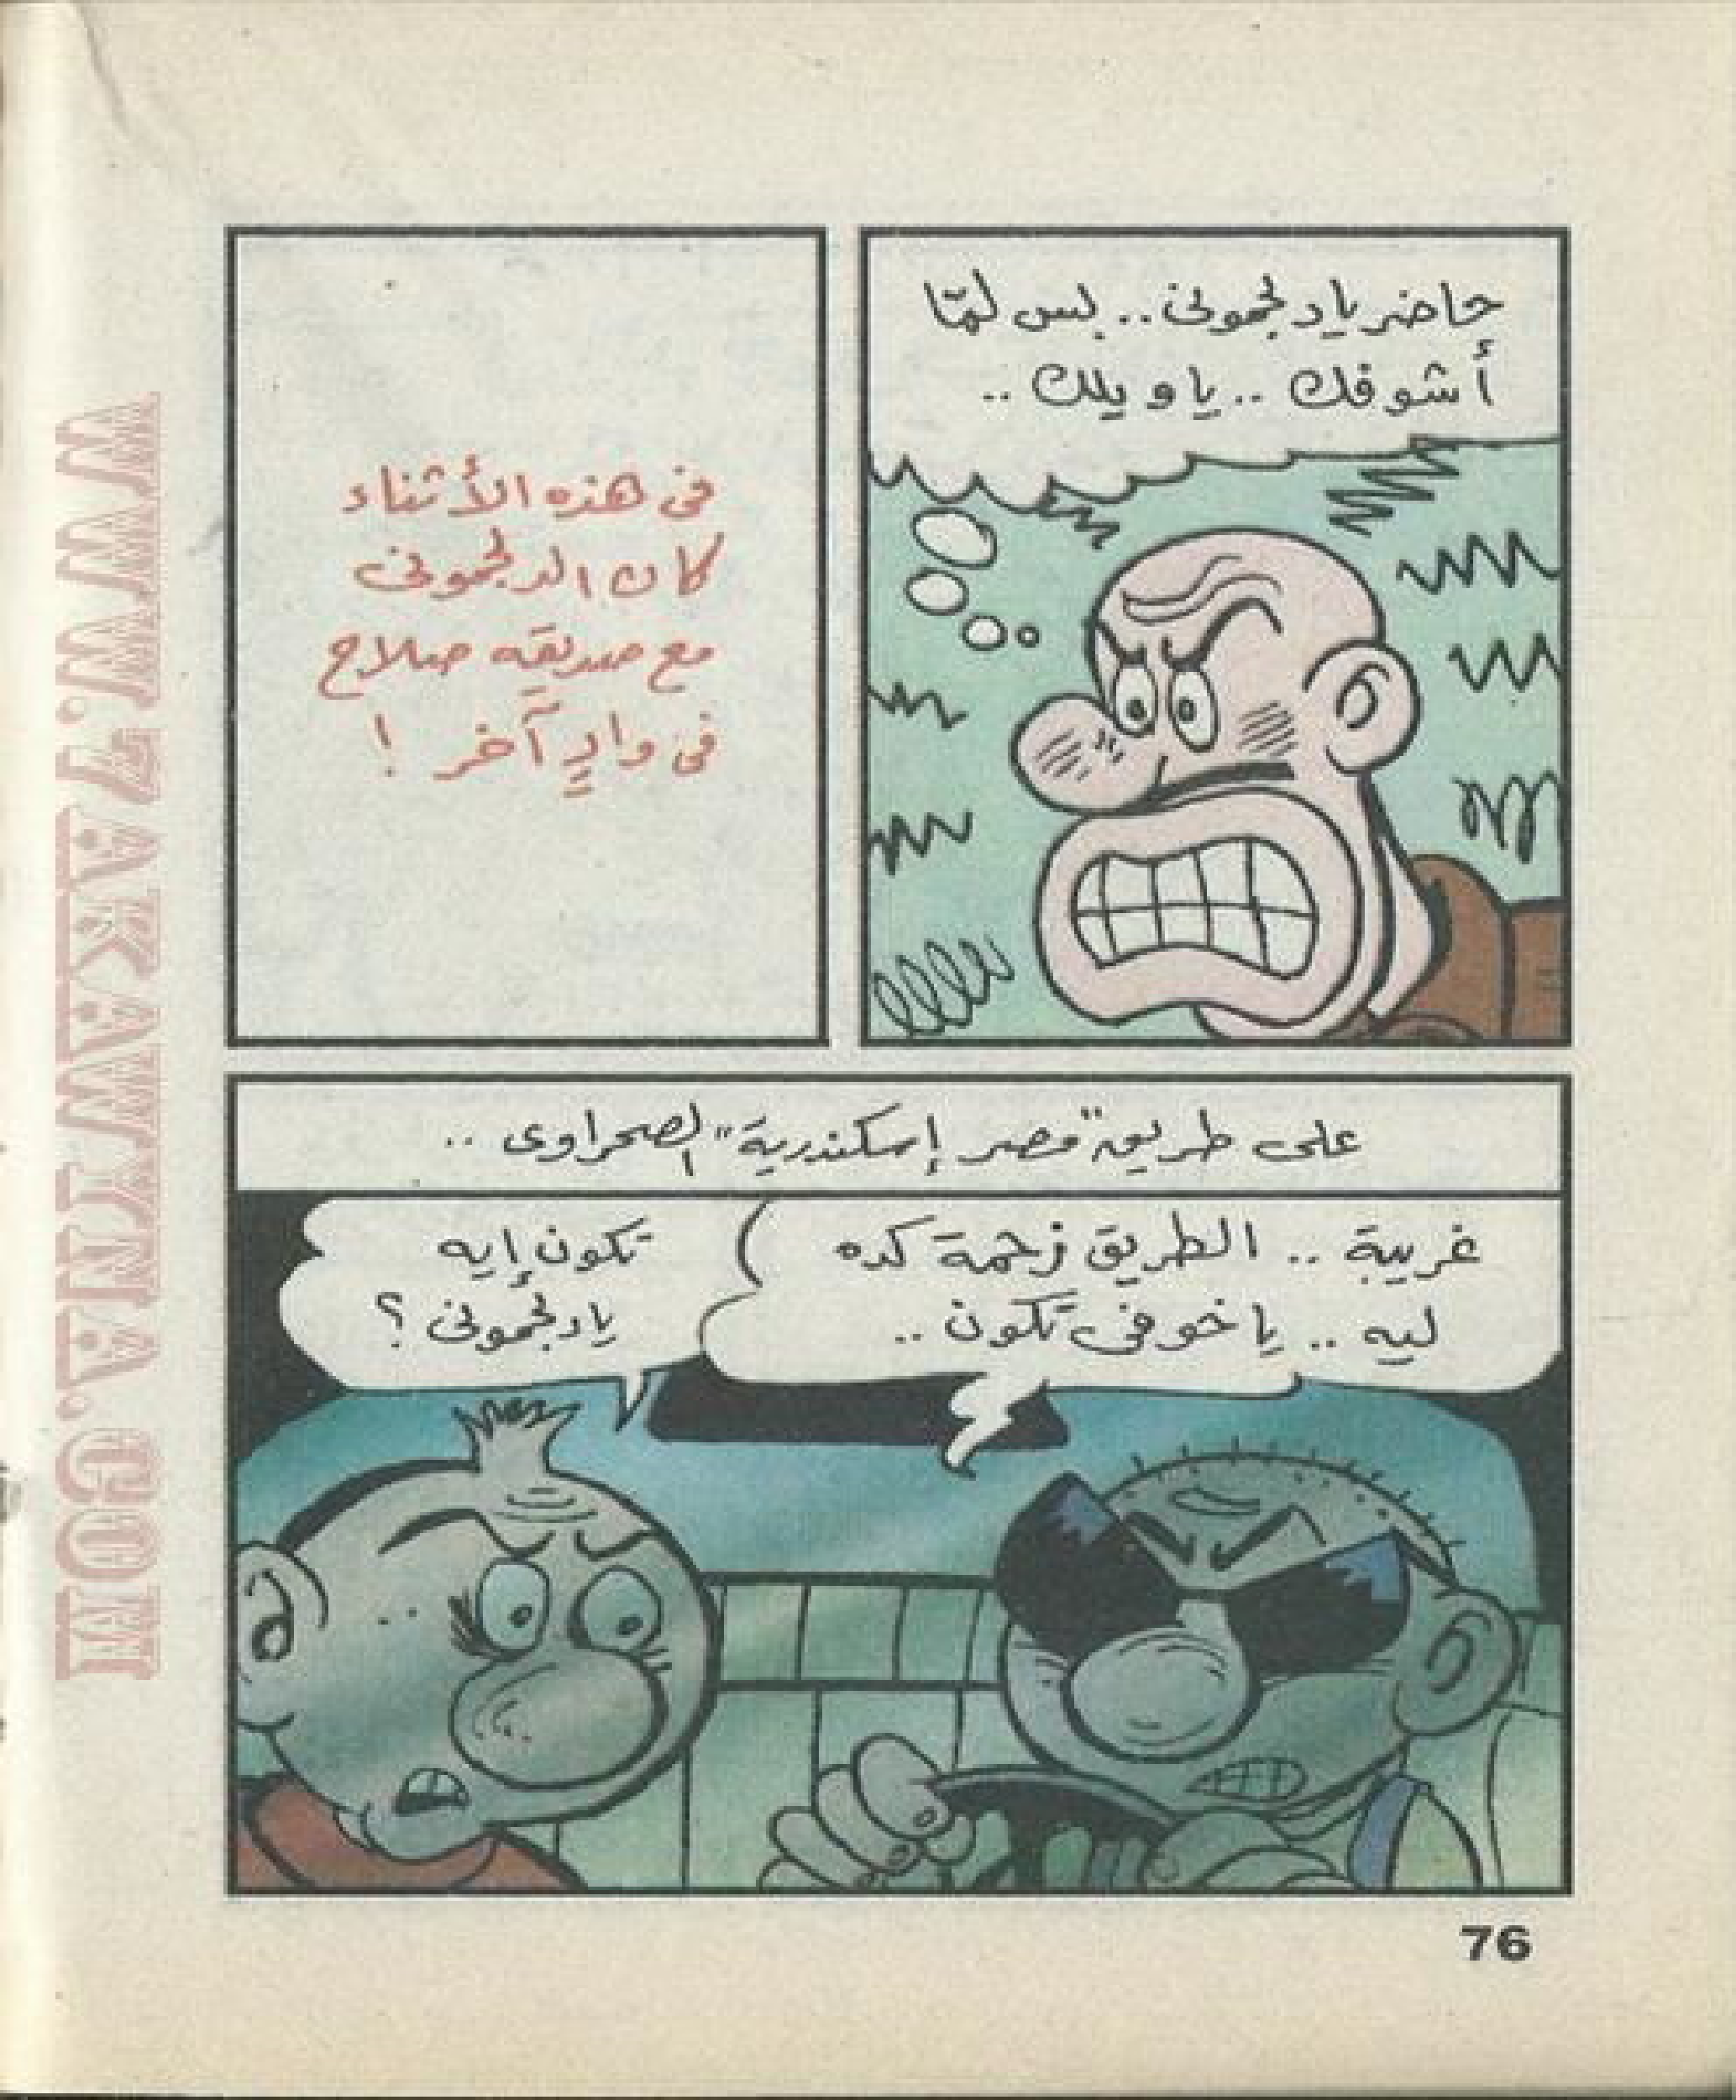 حاضر يا دلجموني .. بس لمّا
أشوفك .. يا ويلك ..
في هذه الأثناء
كان الدلجموني
مع صديقه صلاح
في وادٍ آخر !
على طريق "مصر إسكندرية" الصحراوى ..
غريبة .. الطريق زحمة كده
ليه .. يا خوفى تكون ..
تكون إيه
يا دلجمونى ؟
76
WWW.TAKAWINA.COM